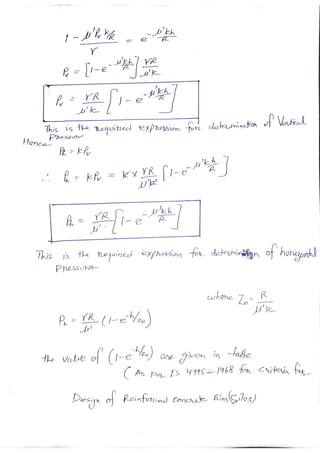 1 - μ'Pᵥ k/R / γ = e^(-μ'kh/R)
Pᵥ = [1-e^(-μ'kh/R)] γR/μ'k
Pᵥ = γR/μ'k [1-e^(-μ'kh/R)]
This is the required expression for determination of Vertical
Pressure
Hence
Pₕ = kPᵥ
∴ Pₕ = kPᵥ = k x γR/μ'k [1-e^(-μ'kh/R)]
Pₕ = γR/μ' [1-e^(-μ'kh/R)]
This is the required expression for determination of horizontal
pressure
where Z₀ = R/μ'k
Pₕ = γR/μ' (1-e^(-h/z₀))
the value of (1-e^(-h/z₀)) are given in table
( As per IS 4995 - 1968 for criteria for
Design of Reinforced concrete Bins (Silos)